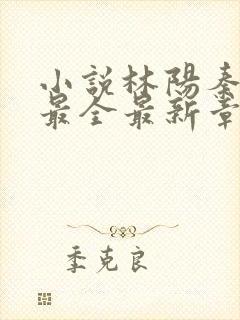 小說林陽秦
最全最新章
季克良